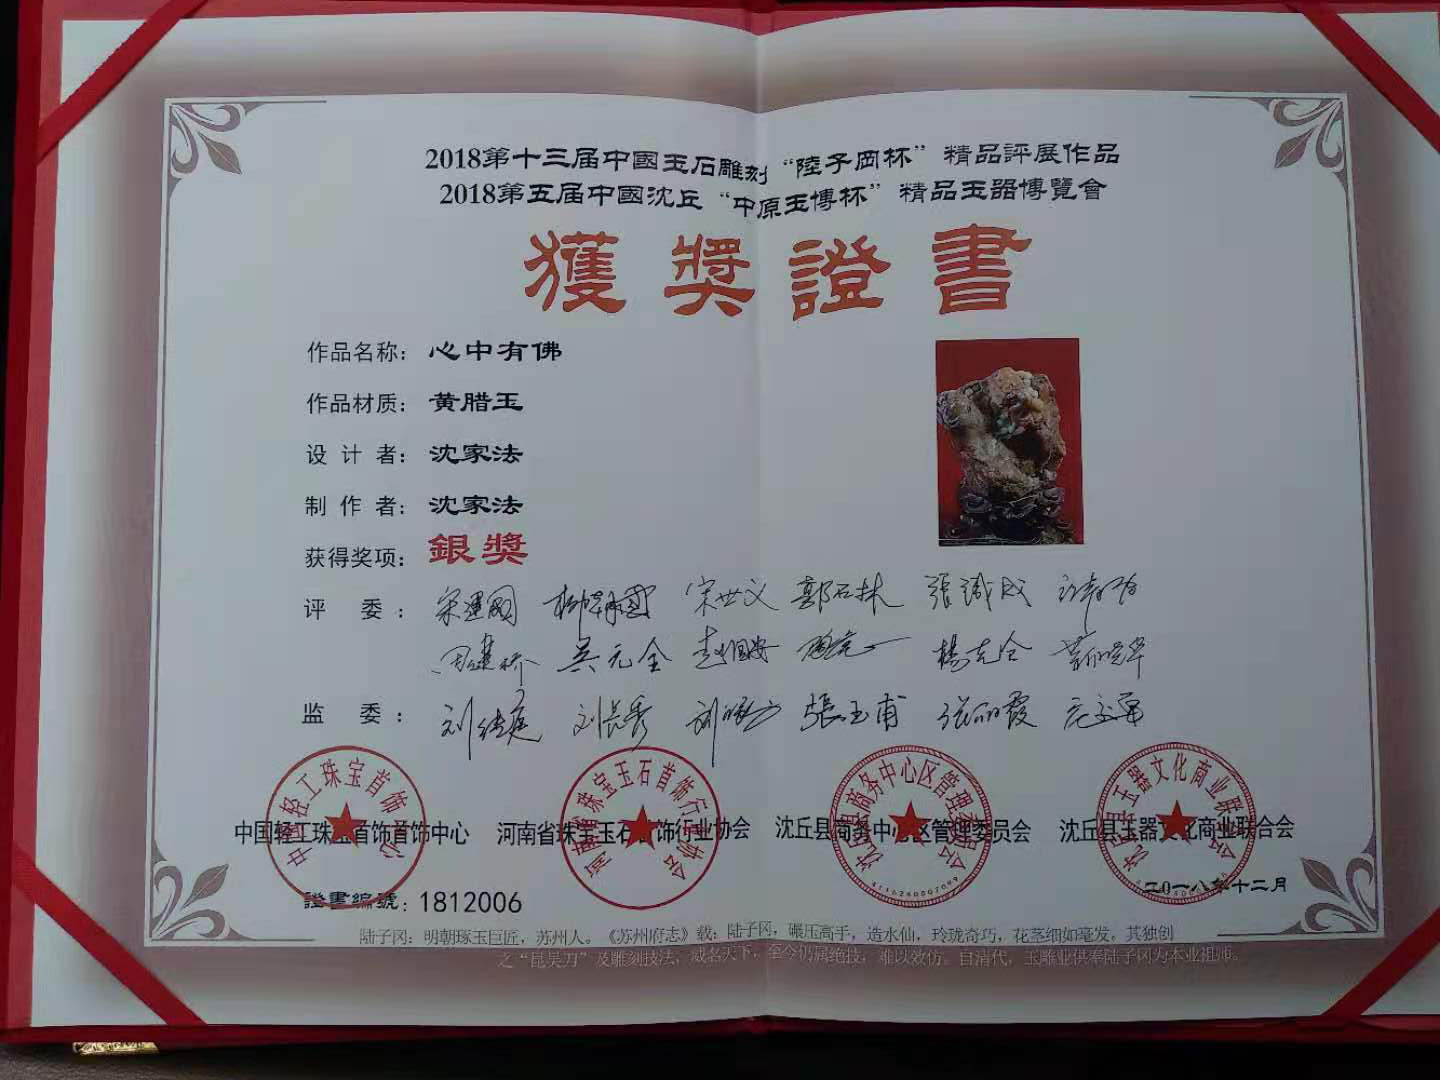 2018第十三届中國玉石雕刻“陸子岡杯”精品評展作品
2018第五届中國沈丘“中原玉博杯”精品玉器博覽會
獲獎證書
作品名称：心中有佛
作品材质：黄腊玉
设计者：沈家法
制作者：沈家法
获得奖项：銀獎
评委：宋建國 柳朝國 宋世义 郭石林 張識成
吴元全 赵国安 楊克全
监委：刘長秀 張玉甫 张丽霞
中国轻工珠宝首饰首饰中心 河南省珠宝玉石首饰行业协会 沈丘县商务中心区管理委员会 沈丘县玉器文化商业联合会
二〇一八年十二月
證書編號：1812006
陆子冈：明朝琢玉巨匠，苏州人。《苏州府志》载：陆子冈，碾压高手，造水仙，玲珑奇巧，花茎细如毫发，其独创
之“昆吴刀”及雕刻技法，威名天下，至今仍属绝技，难以效仿。自清代，玉雕业供奉陆子冈为本业祖师。